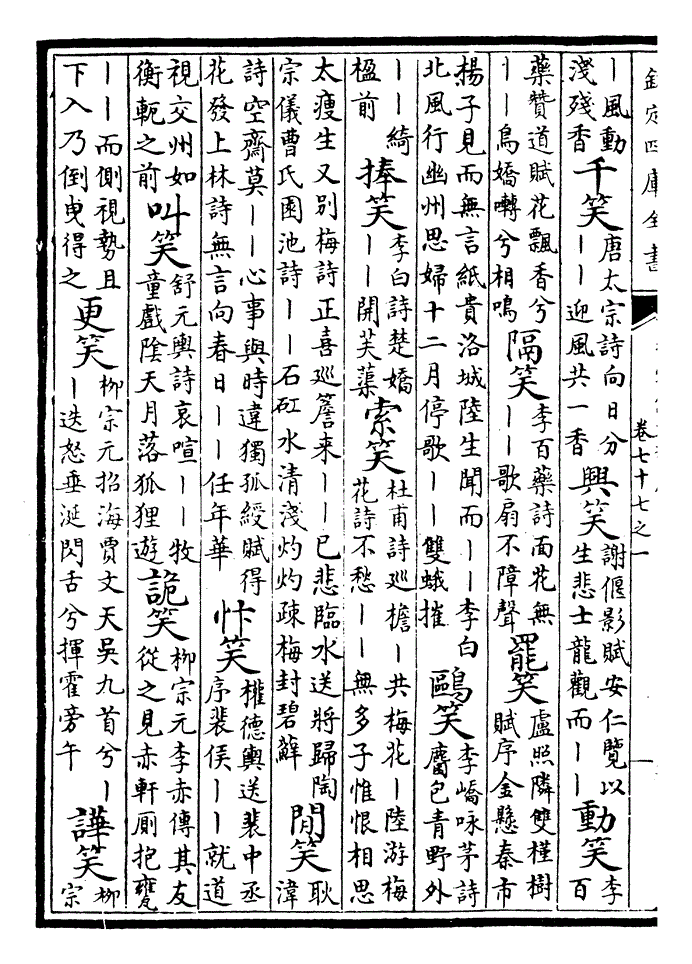 欽定四庫全書
卷七十七之一
一
｜風動
淺殘香
千笑
唐太宗詩向日分
｜｜迎風共一香
興笑
謝偃影賦安仁覽以
生悲士龍觀而｜｜
動笑
李
百
藥贊道賦花飄香兮
｜｜鳥嬌囀兮相鳴
隔笑
李百藥詩面花無
｜｜歌扇不障聲
罷笑
盧照隣雙槿樹
賦序金懸秦市
楊子見而無言紙貴洛城陸生聞而｜｜李白
北風行幽州思婦十二月停歌｜｜雙蛾摧
鷗笑
李嶠咏茅詩
麕包青野外
｜｜綺
楹前
捧笑
李白詩楚嬌
｜｜開芙蕖
索笑
杜甫詩巡檐｜共梅花｜陸游梅
花詩不愁｜｜無多子惟恨相思
太瘦生又別梅詩正喜巡簷来｜｜已悲臨水送將歸陶
宗儀曹氏園池詩｜｜石矼水清淺灼灼疎梅封碧蘚
閒笑
耿
湋
詩空齋莫｜｜心事與時違獨孤綬賦得
花發上林詩無言向春日｜｜任年華
忭笑
權德輿送裴中丞
序裴侯｜｜就道
視交州如
衡軛之前
叫笑
舒元輿詩哀喧｜｜牧
童戲陰天月落狐狸遊
詭笑
柳宗元李赤傳其友
從之見赤軒厠抱甕
｜｜而側視勢且
下入乃倒曳得之
更笑
柳宗元招海賈文天吳九首兮｜
｜迭怒垂涎閃舌兮揮霍旁午
譁笑
柳
宗